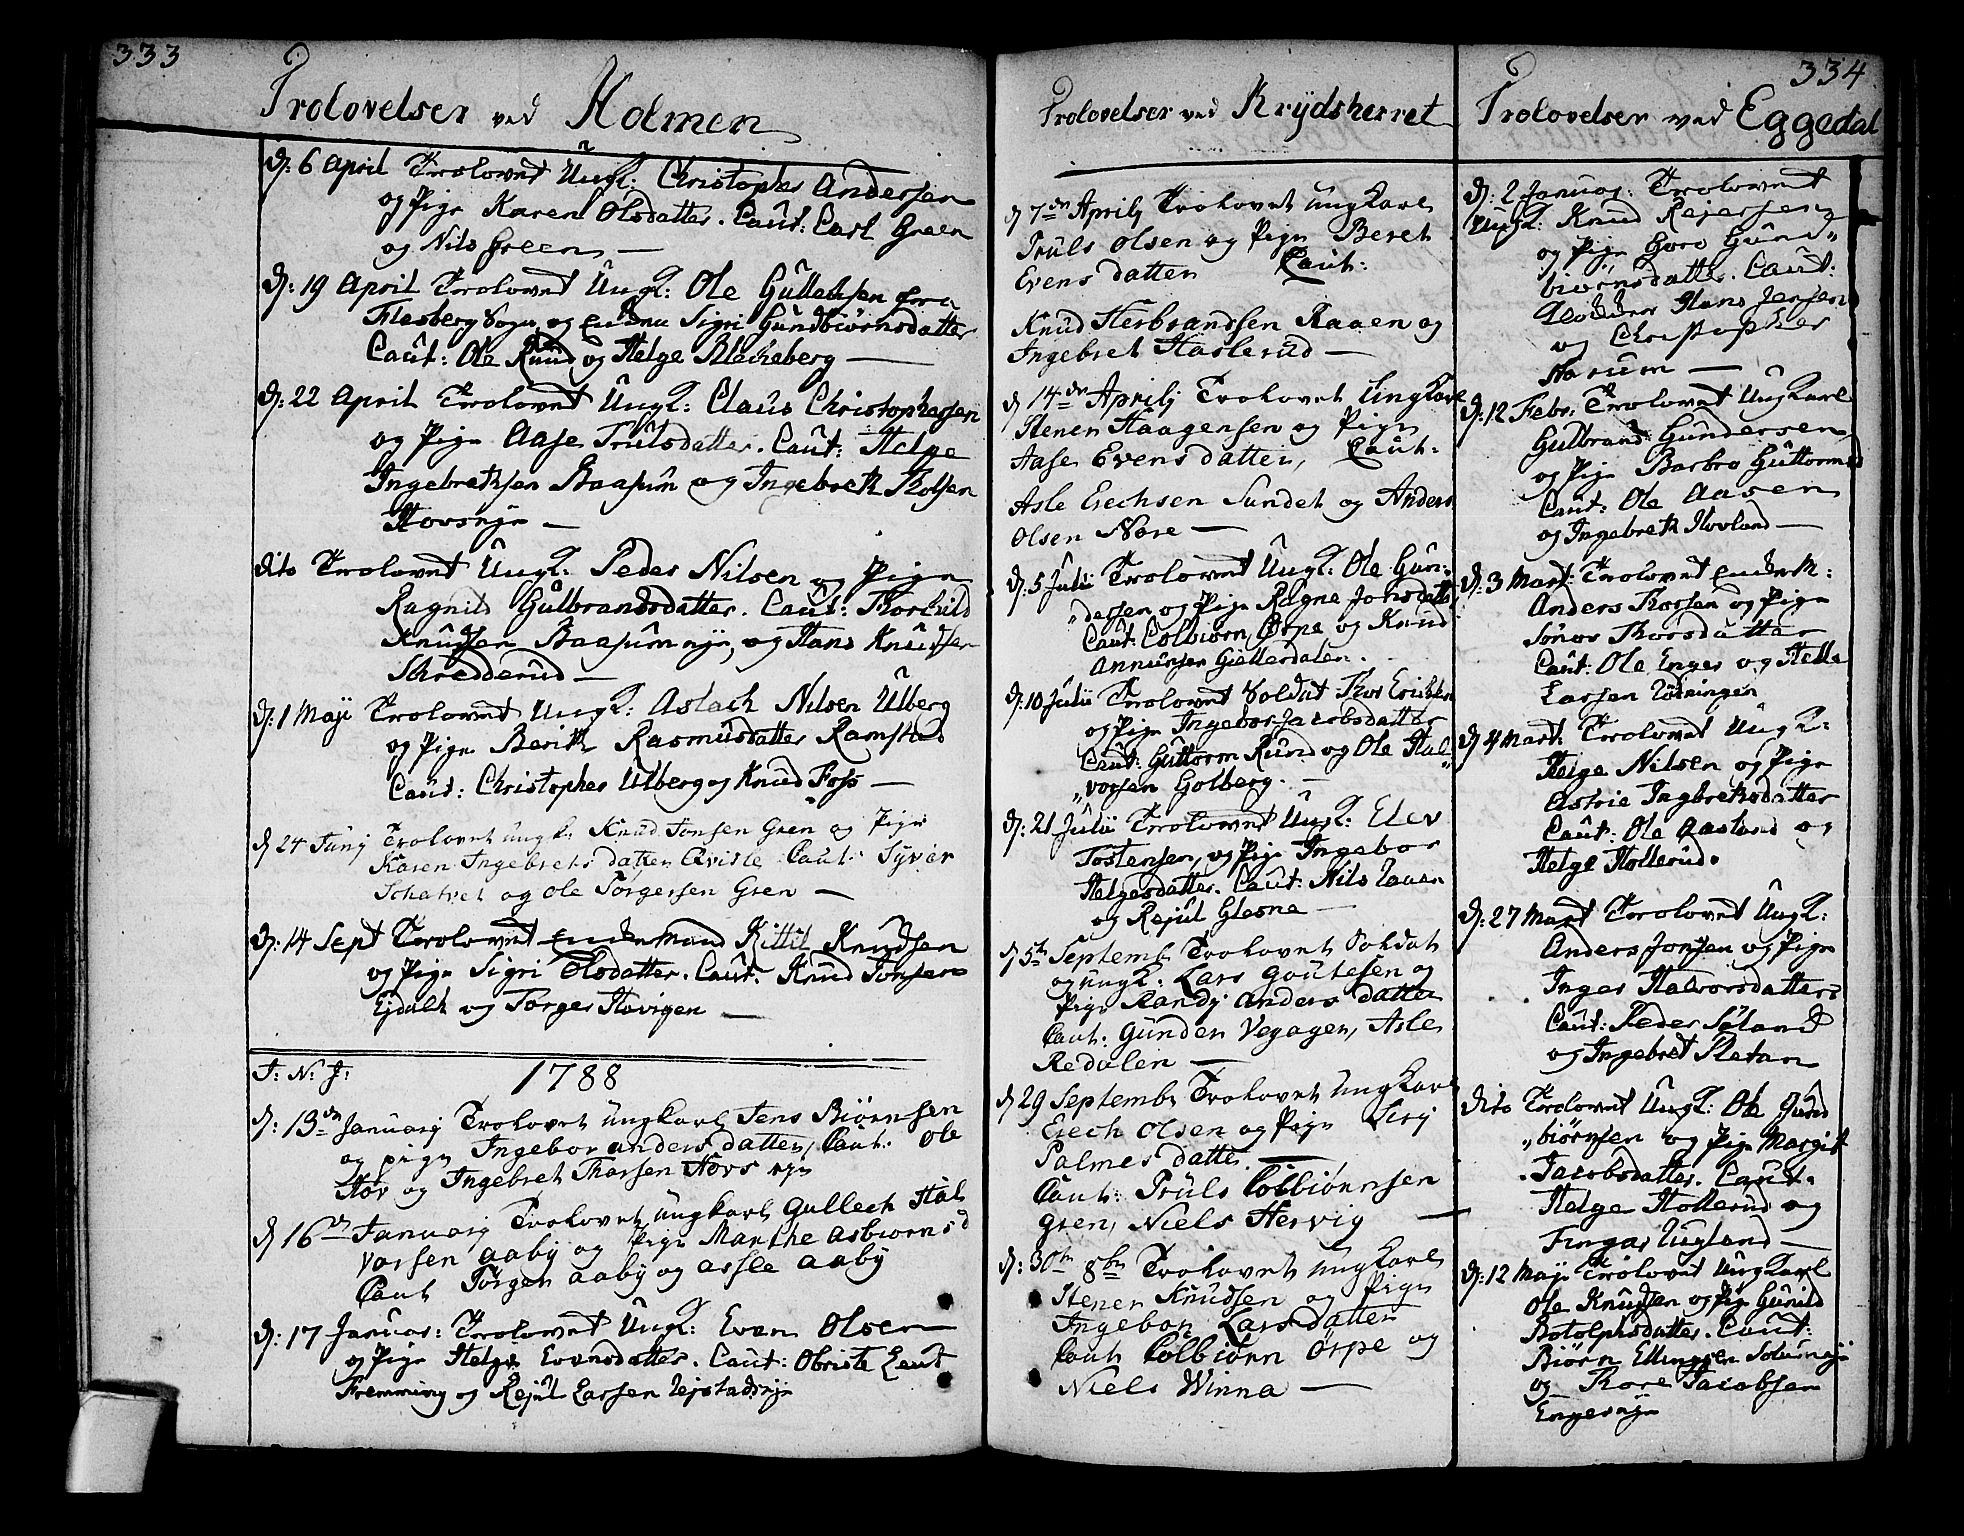 333
Trolovelser ved Holmen
d: 6 April Trolovet Ungk: Christopher Andersen
og Pige Karen Olsdatter. Caut: Carl Green
og Nils Green —
d: 19 April Trolovet Ungk: Ole Gullechsen fra
Flesberg Sogn og Sigri Gundbiörnsdatter
Caut: Ole Ruud og Helge Blecheberg —
d: 22 April Trolovet Ungk: Claus Christophersen
og Pige Aase Trulsdatter. Caut: Helge
Ingebrethsen Baasum og Ingebreth Tholfsen
Hovseje —
dito Trolovet Ungk: Peder Nilsen og Pige
Ragnild Gulbrandsdatter. Caut: Thorkild
Knudsen Baasumeje, og Hans Knudsen
Skredderud —
d: 1 Maji Trolovet Ungk: Aslach Nilsen Ulberg
og Pige Berith Rasmusdatter Ramstad
Caut: Christopher Ulberg og Knud Foss —
d 24 Junij Trolovet ungk: Knud Jonsen Gren og Pige
Karen Ingebrets datter Qvisle Caut: Syver
Schatvet og Ole Törgersen Gren —
d: 14 Sept Trolovet Enkemand Kittil Knudsen
og Pige Sigri Olsdatter. Caut: Knud Jonsen
Ejdalh og Torger Hovigen —
J: N: J: 1788
d: 13de Januarij Trolovet ungkarl Jens Biörnsen
og pige Ingebor anders datter, Caut: Ole
Hov og Ingebret Tharsen Hovs eje
d 16de Januarij Trolovet ungkarl Gullech Hal
vorsen aaby og Pige Marthe asbiörnsd
Caut Törger aaby og assle aaby
d: 17 Januar: Trolovet Ungk: Even Olsen
og Pige Helge Evensdatter. Caut: Obriste Leut
Fremming og Rejul Larsen Lejstadseje
Trolovelser ved Krydsherret
d 7de Aprilj Trolovet ungkarl
Truls Olsen og Pige Beret
Evens datter Caut:
Knud Herbrandsen Raaen og
Ingebret Haslerud —
d 14de Aprilj Trolovet Ungkarl
Stener Haagensen og Pige
Aase Evensdatter, Caut:
Asle Erchsen Sundet og Anders
Olsen Nore —
d: 5 Julii Trolovet Ungk: Ole Gun-
„dersen og Pige Ragne Jonsdatter
Caut: Colbiörn Örpe og Knud
Annunsen Giellerdalen.
d: 10 Julii Trolovet Soldat Thor Erichsen
og Pige Ingebor Jacobsdatter
Caut: Guttorm Ruud og Ole Hal„
„vorsen Golberg. —
d: 21 Julii Trolovet Ungk: Elev
Tostensen, og Pige Ingebor
Helgesdatter. Caut: Nils Lauen
og Rejul Glesne —
d 5te Septembr Trolovet Soldat
og ungk: Lars Goutesen og
Pige Randj anders datter
Caut: Gunder Vegagen, Asle
Redalen —
d 29 Septembr Trolovet Ungkarl
Erech Olsen og Pige Sirj
Palmes datter —
Caut: Truls Colbiörnsen
Gren, Niels Hervig —
d: 30te 8br Trolovet ungkarl
Stener Knudsen og Pige
Ingebor Lars datter
Caut Colbiörn Örpe og
Niels Winna —
334
Trolovelser ved Eggedal
d: 2 Januar: Trolovet
Ungk: Knud Rejersen
og Pige Goro Gund„
biörnsdatter. Caut:
Klokker Hans Jensen
og Christopher
Horum —
d: 12 Febr: Trolovet Ungkarl
Gulbrand Gundersen
og Pige Barbro Guttormsd
Caut: Ole Aasen
og Ingebreth Hovland —
d: 3 Mart: Trolovet Enkem:
Anders Thorsen og Pige
Sönov Thorsdatter
Caut: Ole Enger og Helle
Larsen
d 4 Mart: Trolovet Ungk:
Helge Nilsen og Pige
Astrie Ingbrethsdatter
Caut: Ole Aasland og
Helge Hollerud.
d: 27 Mart Trolovet Ungk:
Anders Jonsen og Pige
Inger Halvorsdatter
Caut: Peder Söland
og Ingebret Sletan
dito Trolovet Ungk: Ole Gund
„biörnsen og Pige Margit
Jacobsdatter. Caut.
Helge Hollerud og
Fingar Ugland —
d: 12 Maji Trolovet Ungkarl
Ole Knudsen og Pige Gunild
Botolphsdatter. Caut:
Biörn Ellingsen Solumseje
og Thore Jacobsen
Engerseje